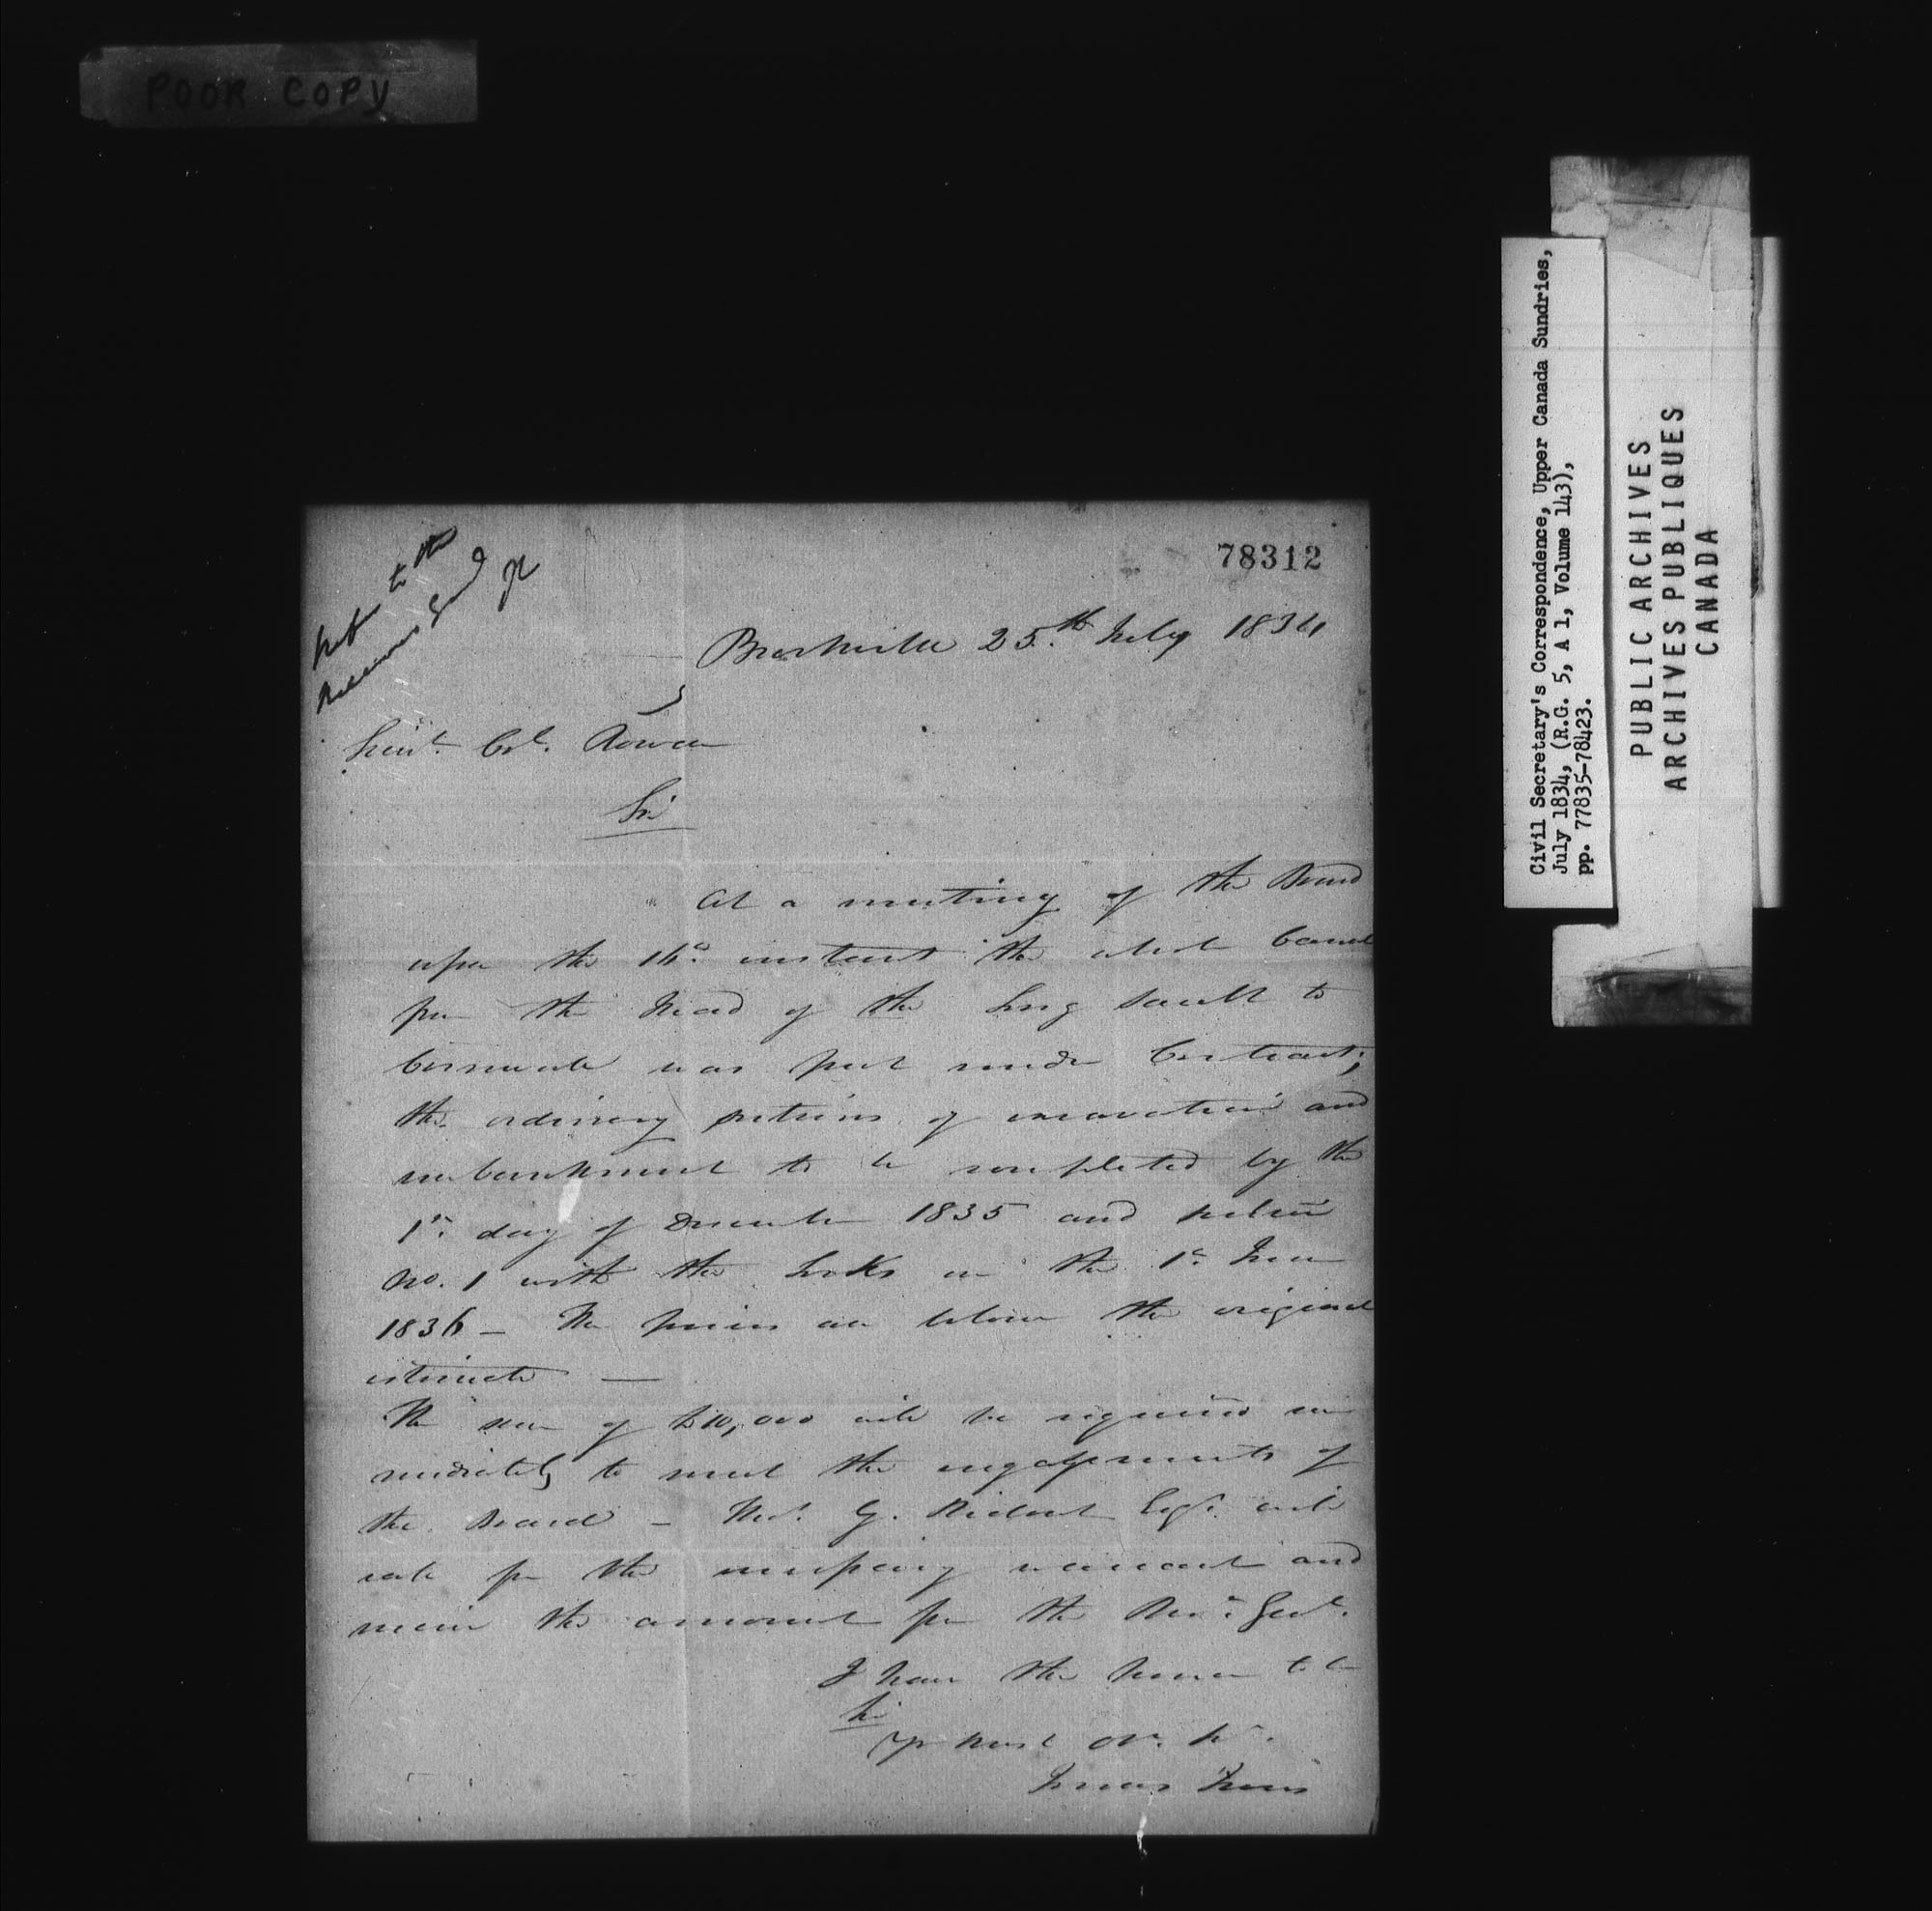 POOR COPY
78312
Refer to the
Receiver Genl
Brockville 25.th July 1834
Lieut. Col. Rowan
Sir
At a meeting of the Board
upon the 16th instant the whole Canal
from the head of the Long Sault to
Cornwall was put under Contract;
the ordinary sections of excavation and
embankment to be completed by the
1st day of December 1835 and section
No. 1 with the Locks on the 1st June
1836 — The prices are below the original
estimate —
The sum of £10,000 will be required im
mediately to meet the engagements of
the Board — G. Ridout Esqr. will
call for the necessary warrant and
receive the amount from the Recr. Genl.
I have the honor to be
Sir
Yr most Ob. St.
Jonas Jones
Civil Secretary's Correspondence, Upper Canada Sundries,
July 1834, (R.G. 5, A 1, Volume 143),
pp. 77835-78423.
PUBLIC ARCHIVES
ARCHIVES PUBLIQUES
CANADA